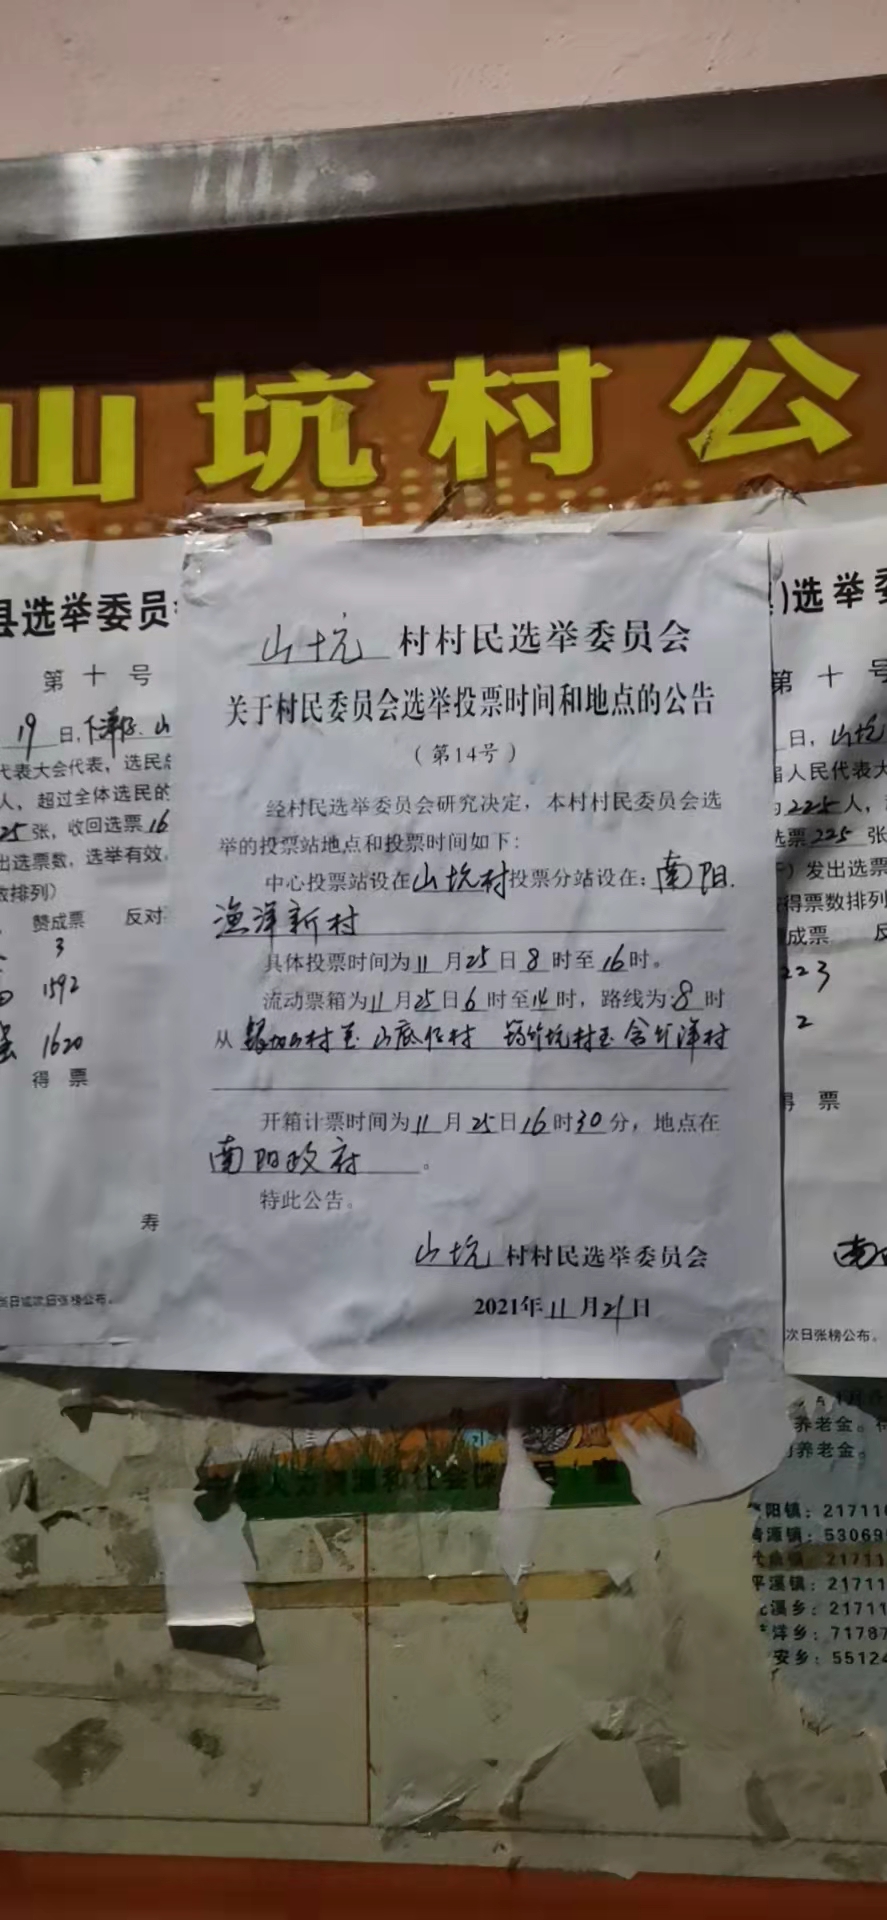 山坑村公
县选举委员
第十号
19日,
代表大会代表，选民
人，超过全体选民的
25张，收回选票16
出选票数，选举有效，
数排列）
赞成票 反对
3
1592
1620
得票
寿
当日或次日张榜公布。
山坑村村民选举委员会
关于村民委员会选举投票时间和地点的公告
（第14号）
经村民选举委员会研究决定，本村村民委员会选
举的投票站地点和投票时间如下：
中心投票站设在山坑村投票分站设在：南阳.
渔洋新村
具体投票时间为11月25日8时至16时。
流动票箱为11月25日6时至14时，路线为:8时
从 村至 山底 村 竹坑村至含 洋村
开箱计票时间为11月25日16时30分，地点在
南阳政府。
特此公告。
山坑村村民选举委员会
2021年11月21日
)选举委
第十号
日，山坑
届人民代表大
为225人，
选票225张
）发出选票
得票数排列
成票 反
223
2
得票
南
次日张榜公布。
人力资源和社会保
养老金。
养老金。
阳镇：21711
源镇：53069
镇：21711
平溪镇：21711
溪乡：21711
洋乡：71787
安乡：55124